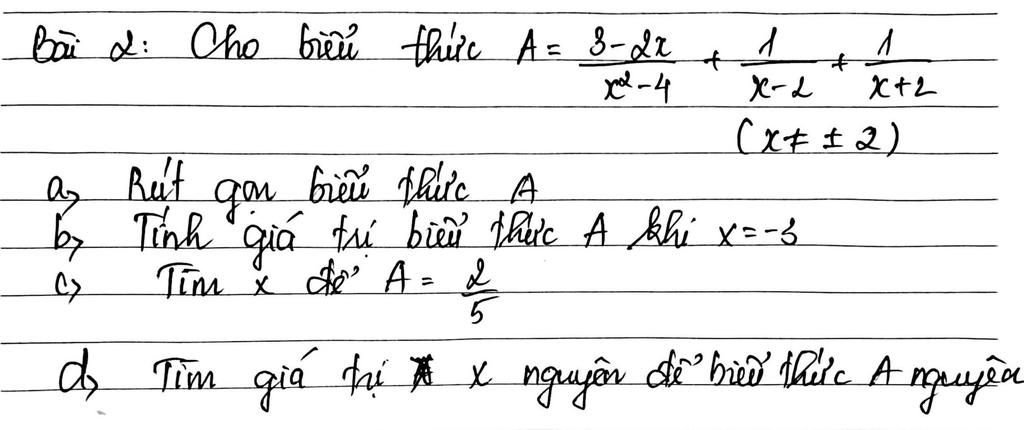 Bài 2: Cho biểu thức A = \frac{3-2x}{x^2-4} + \frac{1}{x-2} + \frac{1}{x+2}
(x ≠ ± 2)
a, Rút gọn biểu thức A
b, Tính giá trị biểu thức A khi x = -3
c, Tìm x để A = \frac{2}{5}
d, Tìm giá trị x nguyên để biểu thức A nguyên